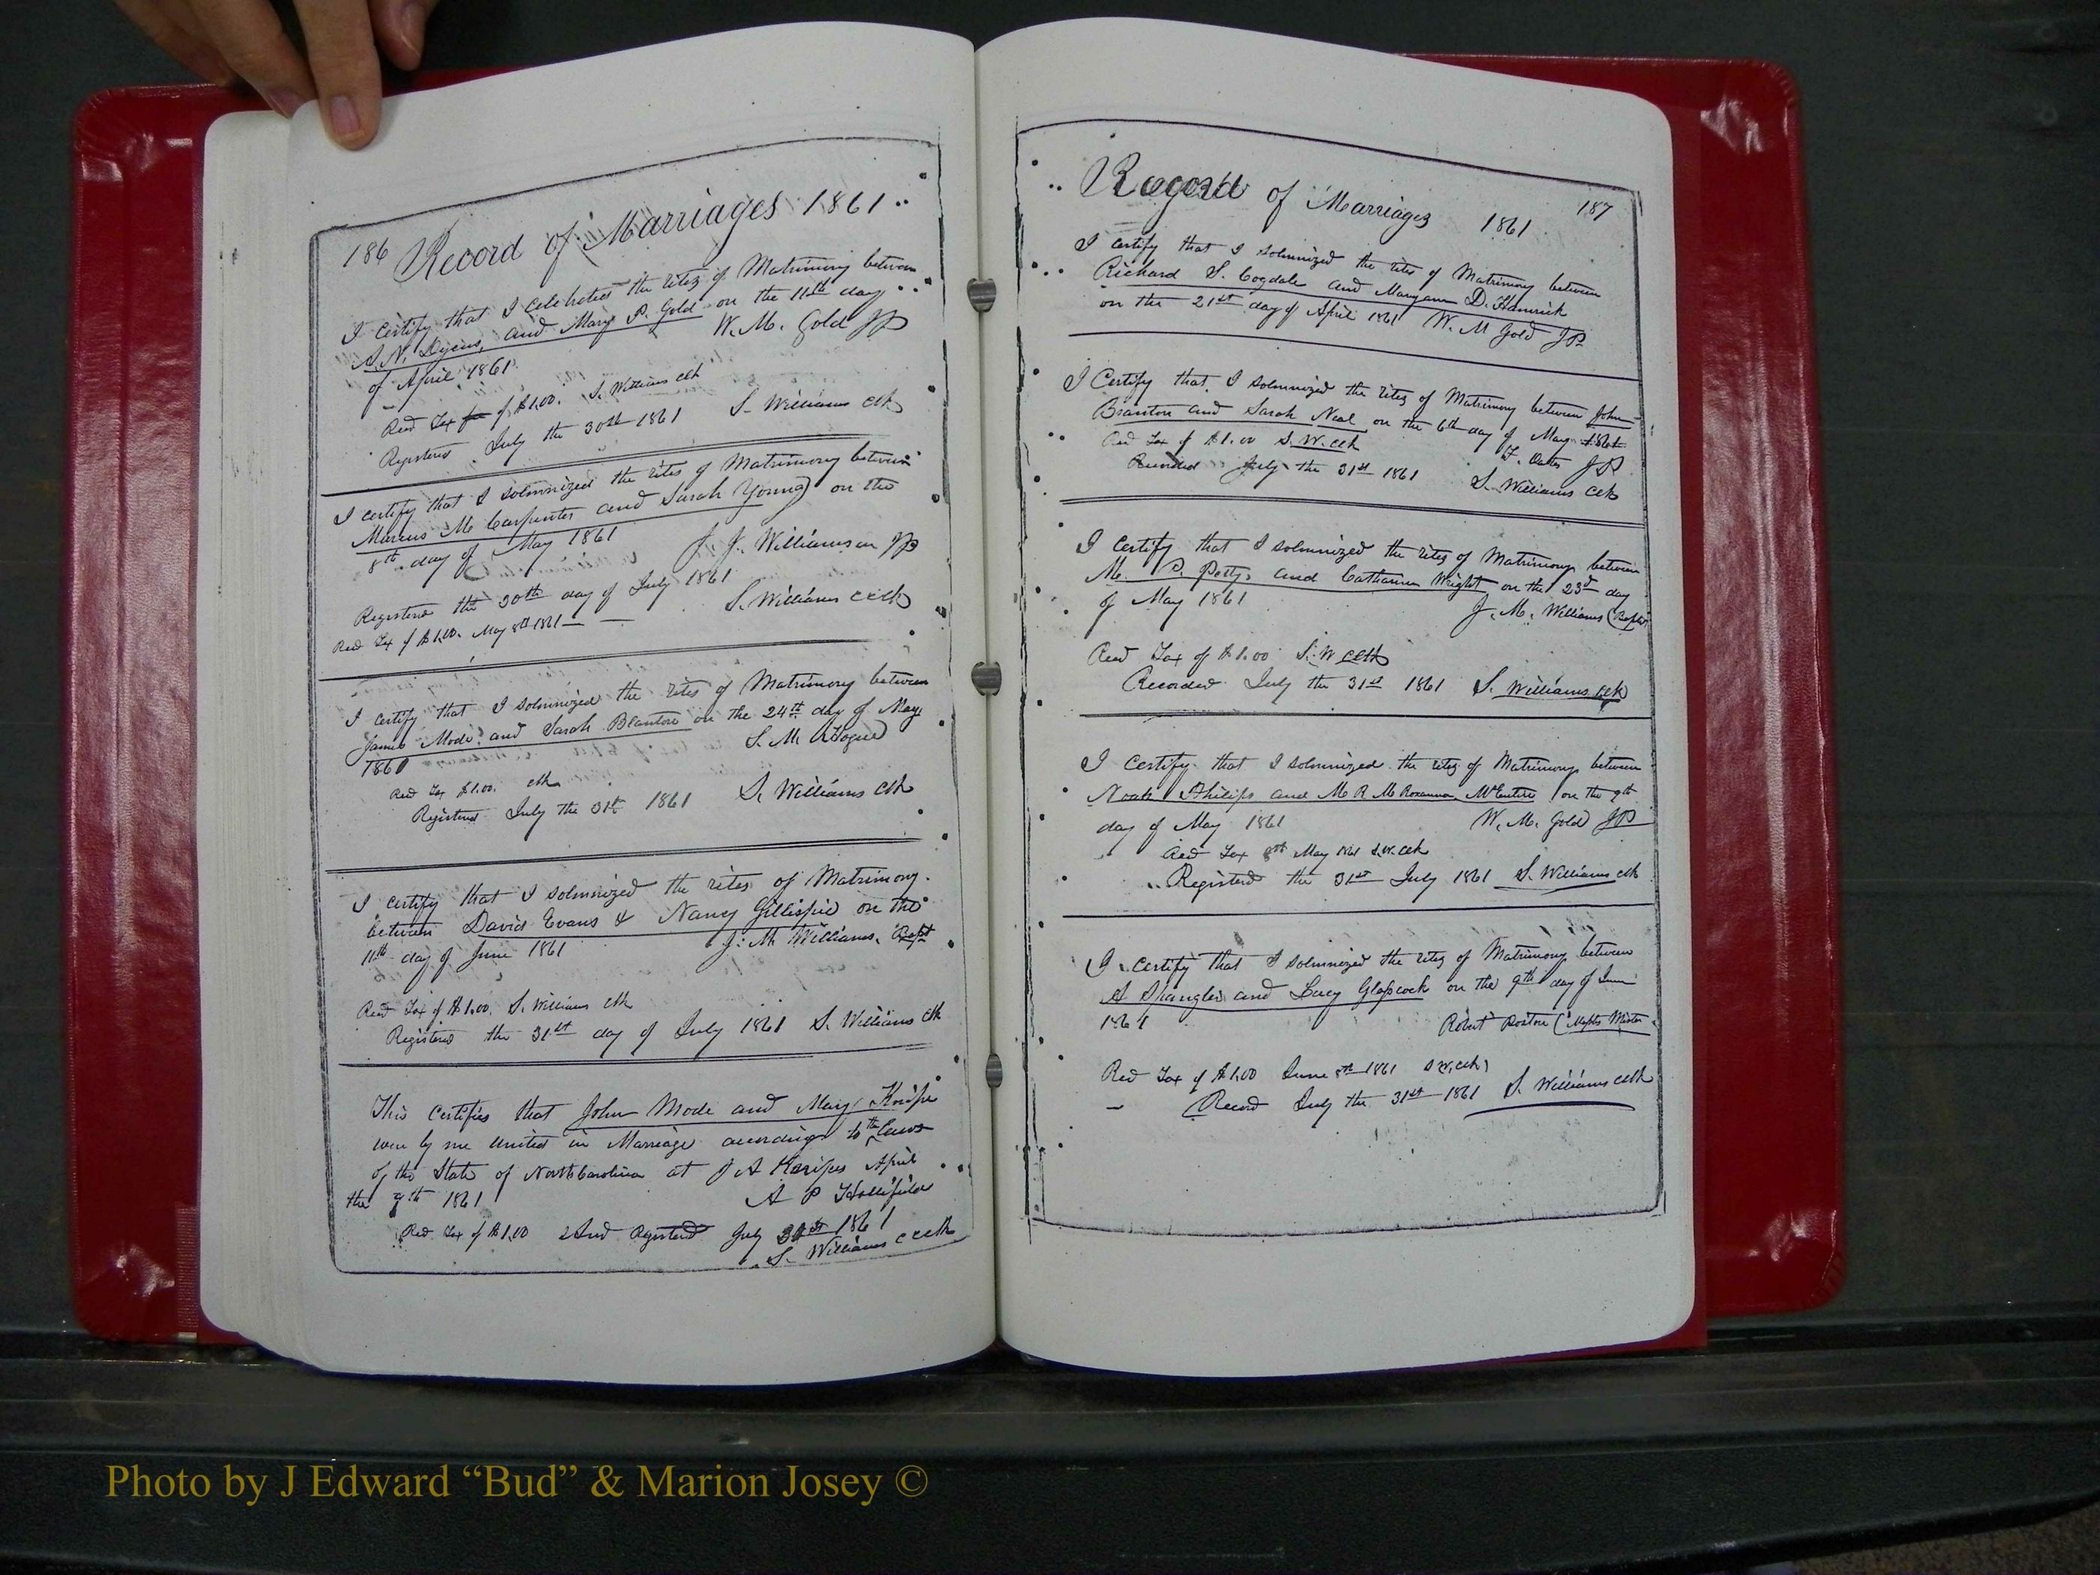 186 Record of Marriages 1861
I certify that I celebrated the rites of Matrimony between
S. N. and Mary P. Gold on the 11th day
of April 1861. W. M. Gold JP
Recd Tax of $1.00. S. Williams clk
Registered July the 30th 1861 S. Williams clk
I certify that I solmnized the rites of Matrimony between
Marcus M Carpenter and Sarah Young on the
8th day of May 1861 J. J. Williamson JP
Registered the 30th day of July 1861 S. Williams cclk
Recd Tax of $1.00. May 8th 1861
I certify that I solmnized the rites of Matrimony between
James Mode and Sarah Blanton on the 24th day of May
1861 S. M.
Recd Tax $1.00. clk
Registered July the 31st 1861 S. Williams clk
I certify that I solmnized the rites of Matrimony
between David Evans & Nancy Gillispie on the
11th day of June 1861 J. M. Williams. Bapt
Recd Tax of $1.00. S. Williams clk
Registered the 31st day of July 1861 S. Williams clk
This certifies that John Mode and Mary
were by me united in Marriage according to the Laws
of the State of North Carolina at J A April
the 9th 1861 A P Hollifield
Recd Tax of $1.00 Registered July 1861
S. Williams cclk
Record of Marriages 1861 187
I certify that I solmnized the rites of Matrimony between
Richard S. Cogdale and Maryann D. Hamrick
on the 21st day of April 1861 W. M Gold JP
I Certify that I solmnized the rites of Matrimony between John
Branton and Sarah Neal on the 6th day of May 1861
Recd Tax of $1.00 S. W. clk JP
Recorded July the 31st 1861 S. Williams clk
I certify that I solmnized the rites of Matrimony between
M. P. Petty and Catharine Wright on the 23d day
of May 1861 J. M. Williams (Baptis
Recd Tax of $1.00 S. W cclk
Recorded July the 31st 1861 S. Williams clk
I certify that I solmnized the rites of Matrimony between
Noah Philips and M R M Roxanna McEntire on the 9th
day of May 1861 W. M. Gold JP
Recd Tax 8th May 1861 S. W. clk
Registered the 31st July 1861 S. Williams clk
I certify that I solmnized the rites of Matrimony between
A and Lucy Glascock on the 9th day of June
1861 Robert
Recd Tax of $1.00 June 8th 1861 S W. clk
Record July the 31st 1861 S. Williams clk
Photo by J Edward “Bud” & Marion Josey ©